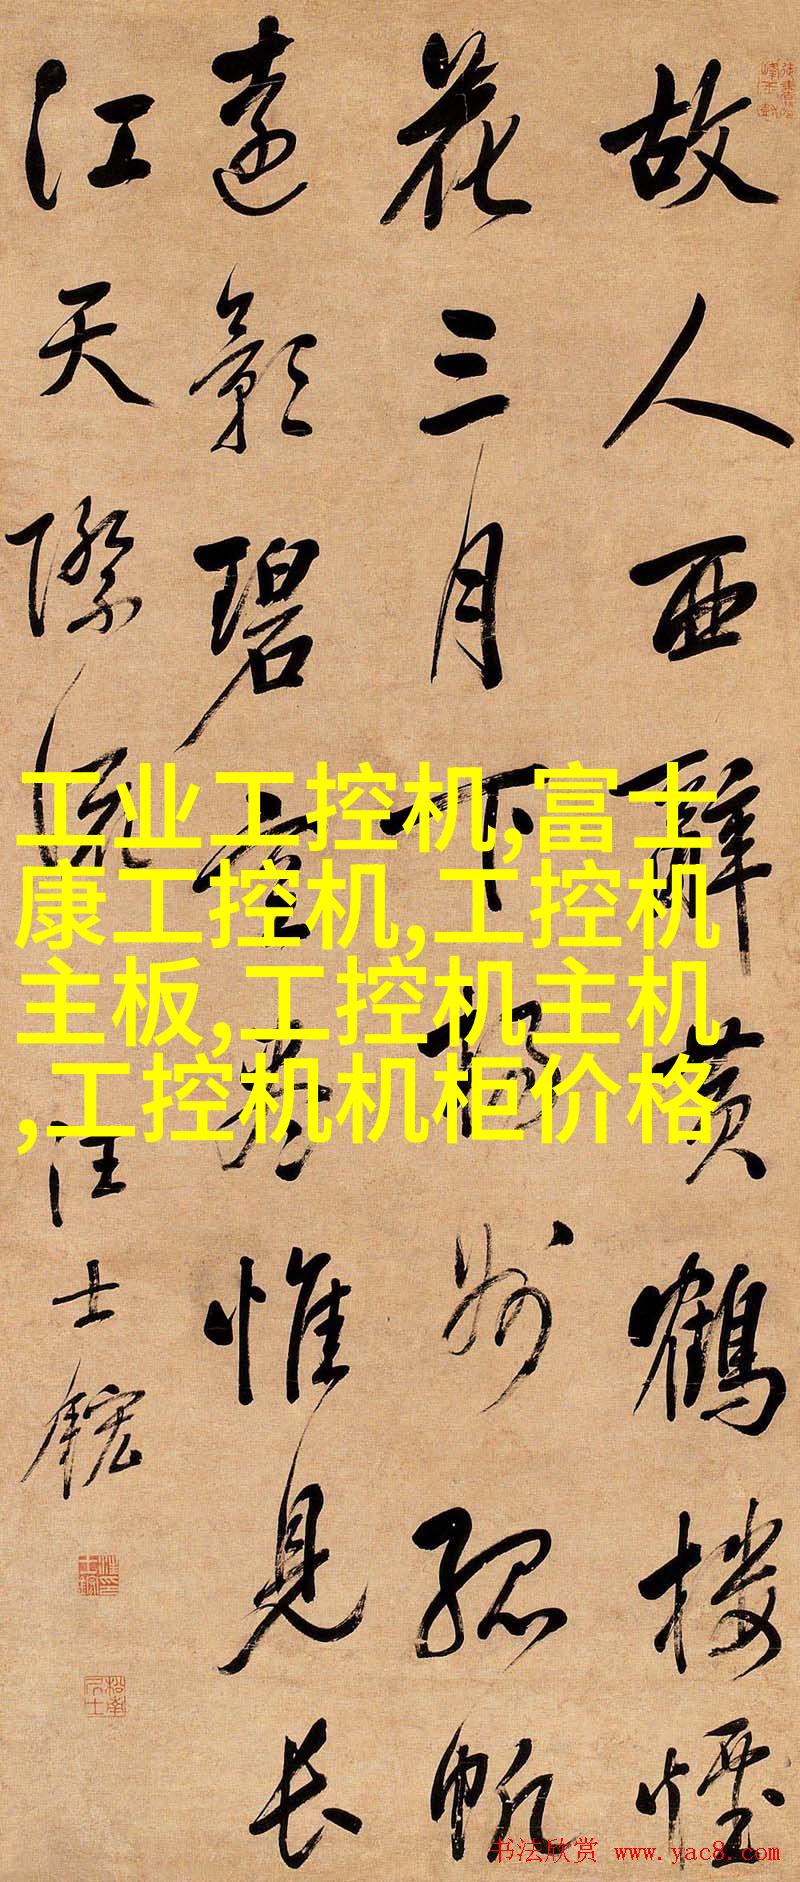 故人西辭黄鶴樓煙
花三月下揚州孤帆
遠影碧空盡惟見長
江天際流
汪士鋐
工业工控机,富士
康工控机,工控机
主板,工控机主机
,工控机机柜价格
书法欣赏 www.yac8.com